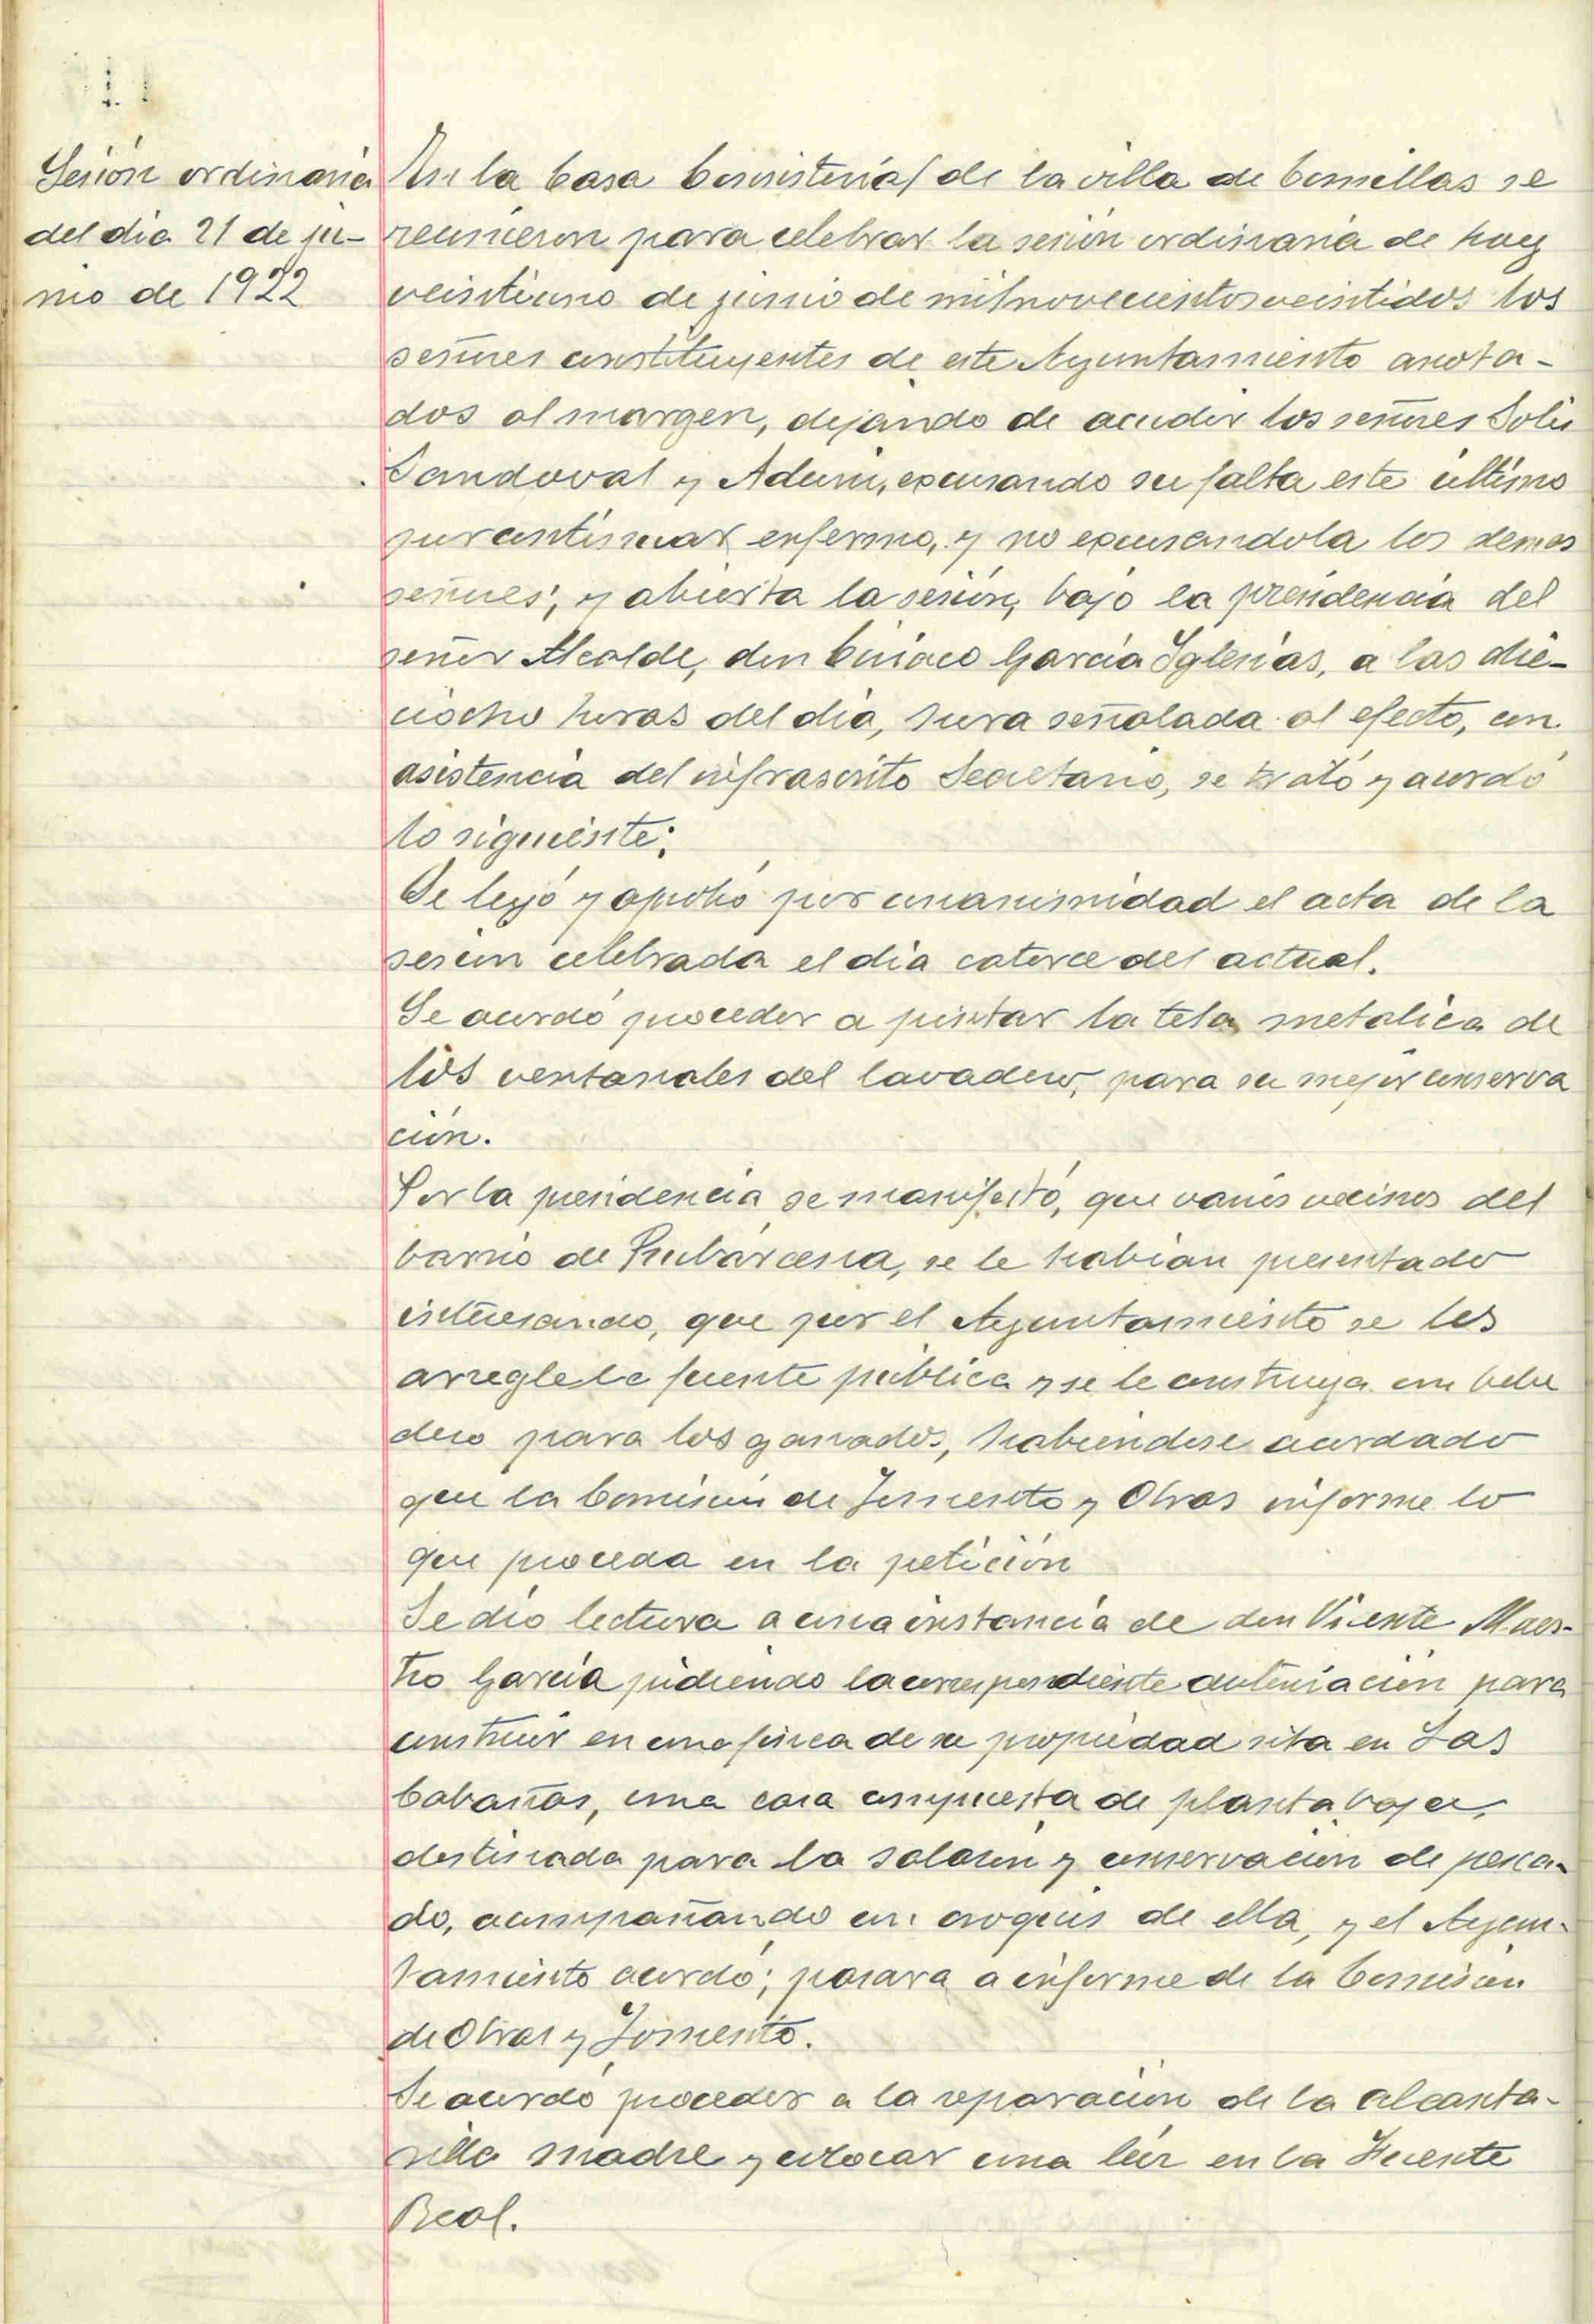 Sesión ordinaria
del dia 21 de ju-
nio de 1922
En la Casa Consistorial de la villa de Comillas se
reunieron para celebrar la sesión ordinaria de hoy
veintiuno de junio de mil novecientos veintidos los
señores constituyentes de este Ayuntamiento anota-
dos al margen, dejando de acudir los señores Solis
Sandoval y, excusando su falta este último
por continuar enfermo, y no excusandola los demas
señores; y abierta la sesión, bajo la presidencia del
señor Alcalde, don Ciriaco García Iglesias, a las die-
ciocho horas del dia, hora señalada al efecto, con
asistencia del infrascrito Secretario, se trató y acordó
lo siguiente:
Se leyó y aprobó por unanimidad el acta de la
sesion celebrada el dia catorce del actual.
Se acordó proceder a pintar la tela metalica de
los ventanales del lavadero, para su mejor conserva
ción.
Por la presidencia se manifestó, que varios vecinos del
barrio de Rubárcena, se le habian presentado
interesando, que por el Ayuntamiento se les
arregle la fuente pública y se le construya un bebe
dero para los ganados, habiendose acordado
que la Comisión de Fomento y Obras informe lo
que proceda en la petición
Se dio lectura a una instancia de don Vicente Maes-
tro García pidiendo la correspondiente autorización para
construir en una finca de su propiedad sita en Las
Cabañas, una casa compuesta de planta baja,
destinada para la salazon y conservación de pesca-
do, acompañando un croquis de ella, y el Ayun-
tamiento acordó; pasara a informe de la Comisión
de Obras y Fomento.
Se acordó proceder a la reparación de la alcanta-
rilla madre y colocar una luz en la Fuente
Real.